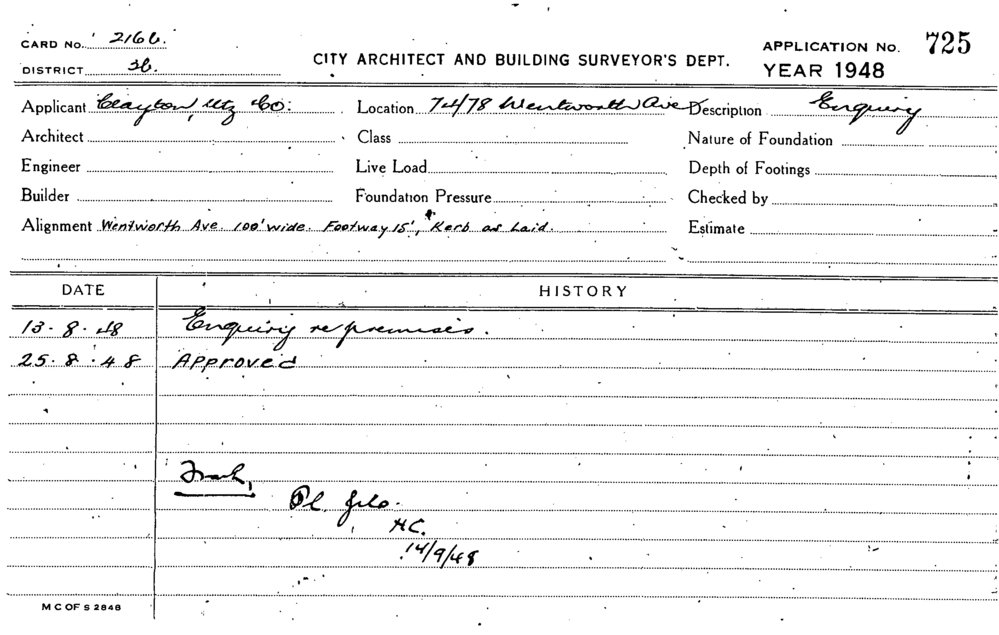 CARD No. 2166. CITY ARCHITECT AND BUILDING SURVEYOR'S DEPT. APPLICATION No. 725
DISTRICT 3b. YEAR 1948
Applicant Clayton, Utz & Co: Location 74/78 Wentworth Ave Description Enquiry
Architect Class Nature of Foundation
Engineer Live Load Depth of Footings
Builder Foundation Pressure Checked by
Alignment Wentworth Ave. 100' wide. Footway 15', Kerb as Laid. Estimate
DATE HISTORY
13.8.48 Enquiry re premises.
25.8.48 Approved
Frank,
Pl. file.
H.C.
14/9/48
M C OF S 2848